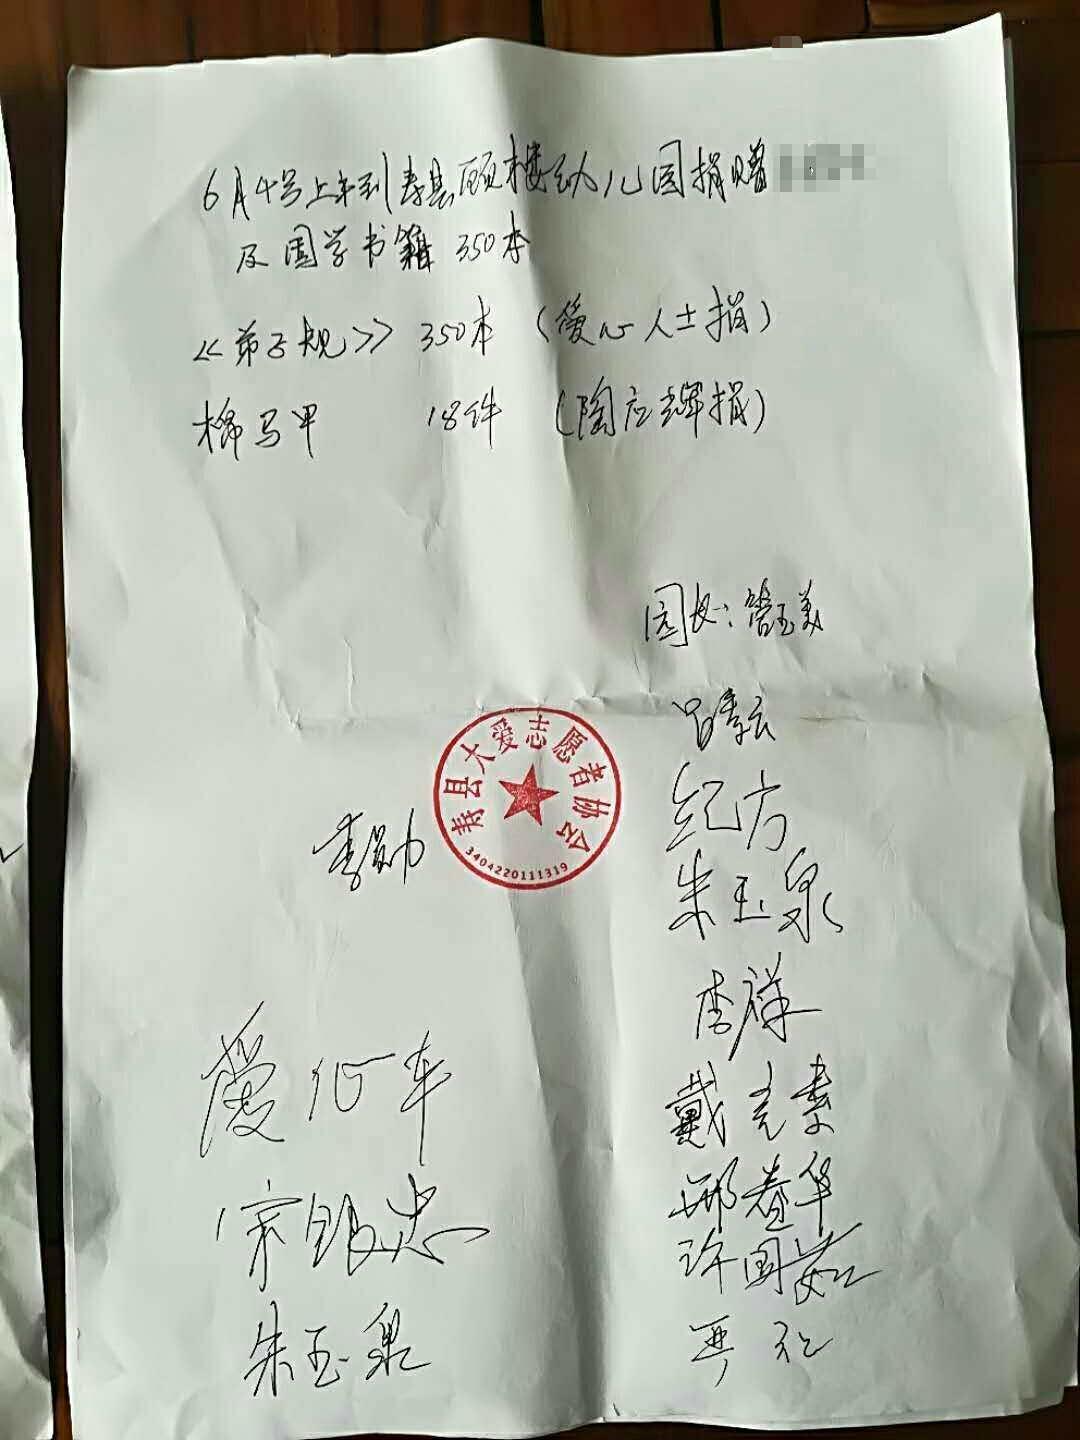 6月4号上午到寿县顾楼幼儿园捐赠
及国学书籍 350本
《弟子规》 350本 (爱心人士捐)
棉马甲 18件 (陶应辉捐)
园长:管玉美
吕孝云
纪方
朱玉泉
李祥
戴克素
邢春华
许国茹
寿县大爱志愿者协会
3404220111319
李勋
爱心车
宋银忠
朱玉泉